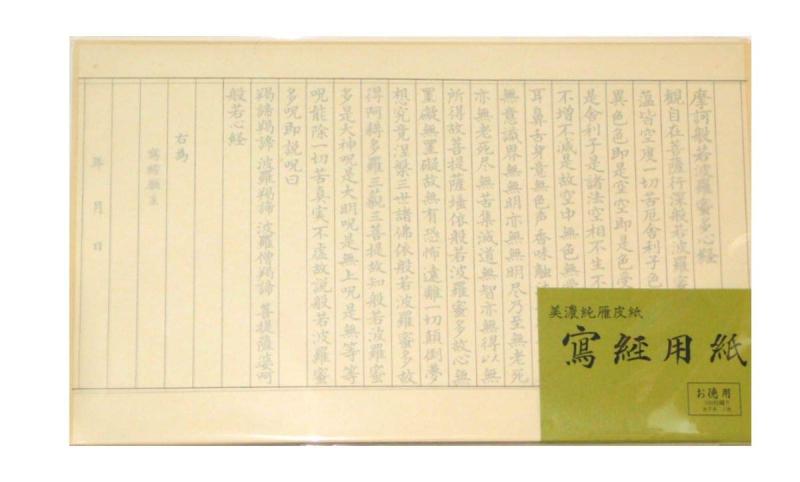 摩訶般若波羅蜜多心経
観自在菩薩行深般若波羅蜜
薀皆空度一切苦厄舎利子色
異色色即是空空即是色受
是舎利子是諸法空相不生不
不増不減是故空中無色無
耳鼻舌身意無色声香味触
無意識界無無明亦無無明尽乃至無老死
亦無老死尽無苦集滅道無智亦無得以無
所得故菩提薩埵依般若波羅蜜多故心無
罣礙無罣礙故無有恐怖遠離一切顛倒夢
想究竟涅槃三世諸佛依般若波羅蜜多故
得阿耨多羅三藐三菩提故知般若波羅蜜
多是大神呪是大明呪是無上呪是無等等
呪能除一切苦真実不虚故説般若波羅蜜
多呪即説呪曰
羯諦羯諦 波羅羯諦 波羅僧羯諦 菩提薩婆呵
般若心経
右為
年 月 日
美濃純雁皮紙
寫経用紙
お徳用